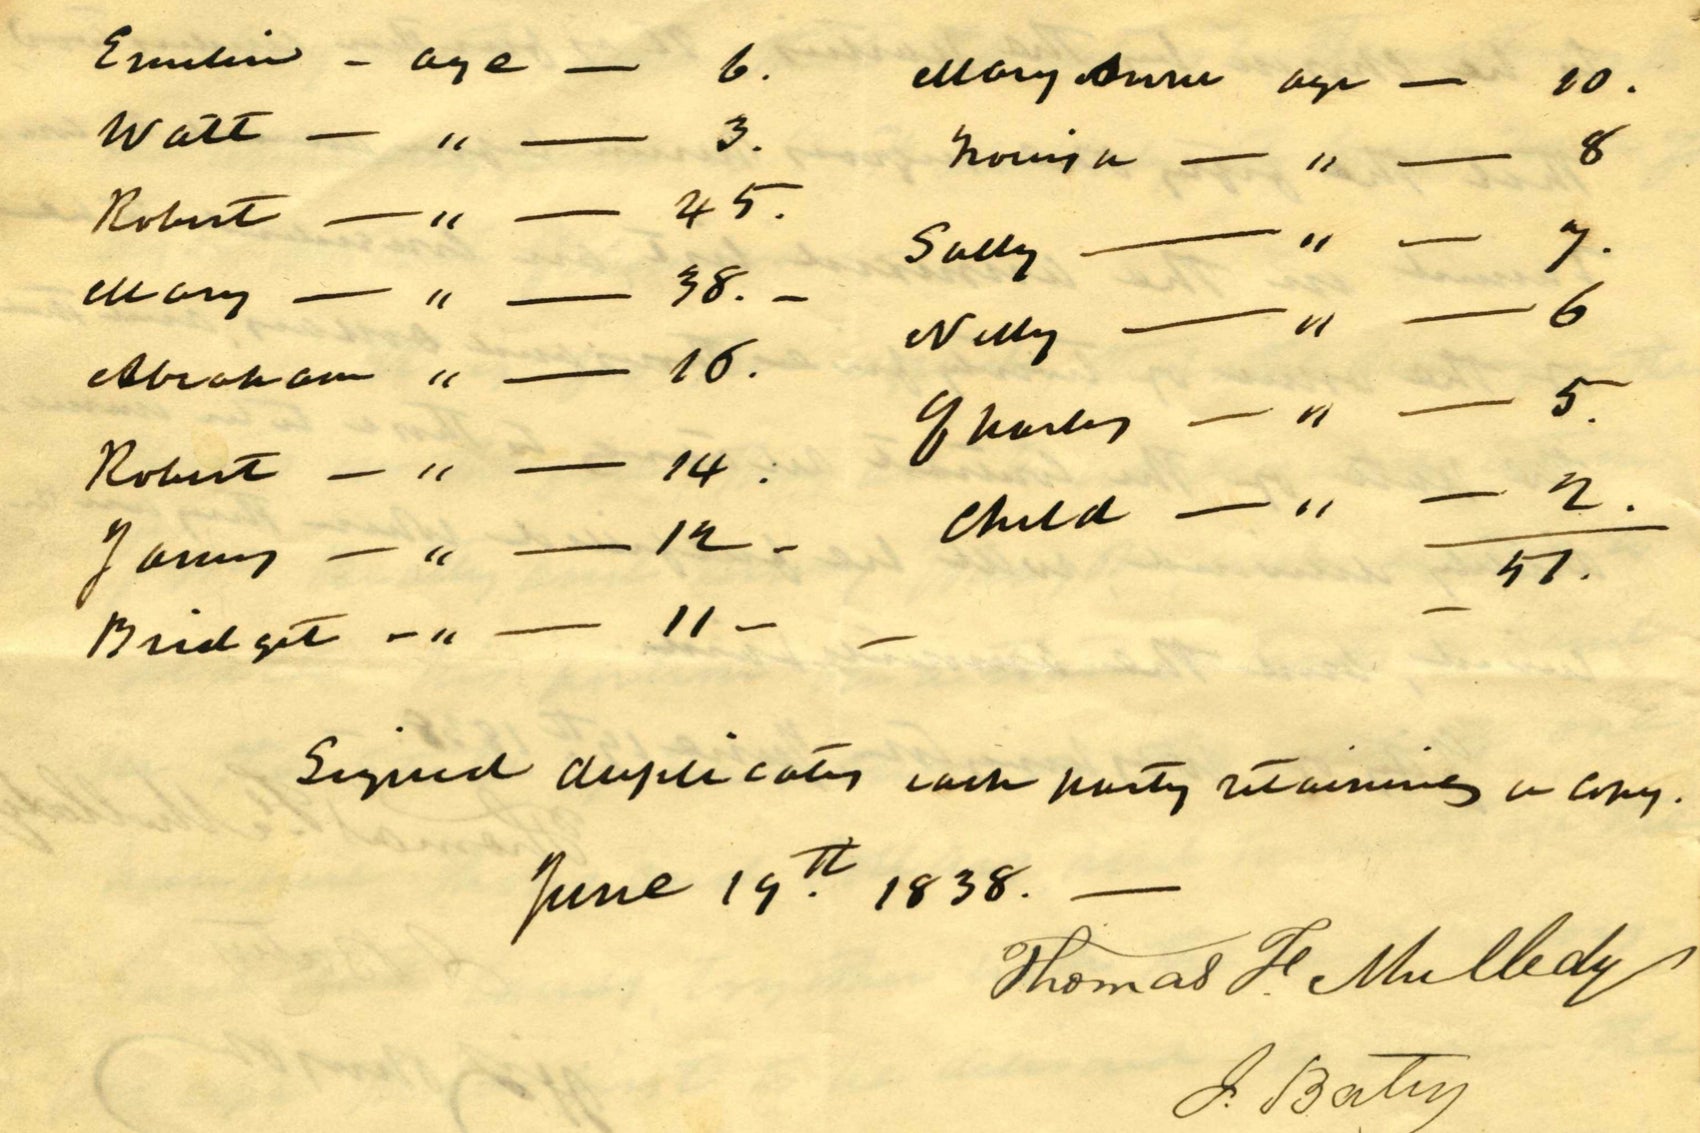 Emeline - age — 6.
Watt — " — 3.
Robert — " — 45.
Mary — " — 38. -
Abraham " — 16.
Robert — " — 14.
James — " — 12 -
Bridget - " — 11 -
Mary Anne age — 10.
Louisa — " — 8
Sally — " — 7.
Nelly — " — 6
Charles — " — 5.
Child — " — 2.
51.
Signed duplicates each party retaining a copy.
June 19th. 1838. —
Thomas F. Mulledy
J. Batey